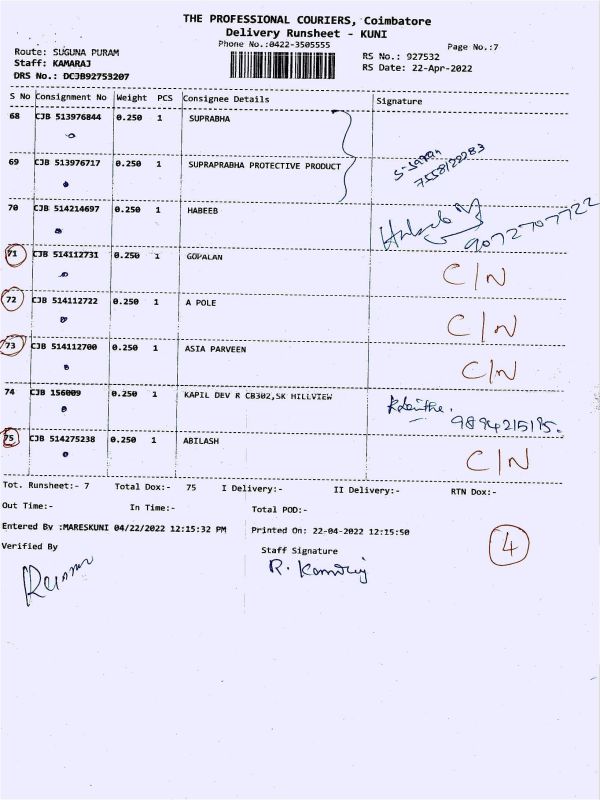 THE PROFESSIONAL COURIERS, Coimbatore
Delivery Runsheet - KUNI
Phone No.:0422-3505555
Page No.:7
Route: SUGUNA PURAM
Staff: KAMARAJ
DRS No.: DCJB92753207
RS No.: 927532
RS Date: 22-Apr-2022
S No Consignment No Weight PCS Consignee Details Signature
68 CJB 513976844 0.250 1 SUPRABHA
69 CJB 513976717 0.250 1 SUPRAPRABHA PROTECTIVE PRODUCT
70 CJB 514214697 0.250 1 HABEEB 9072707722
71 CJB 514112731 0.250 1 GOPALAN C/N
72 CJB 514112722 0.250 1 A POLE C/N
73 CJB 514112700 0.250 1 ASIA PARVEEN C/N
74 CJB 156009 0.250 1 KAPIL DEV R CB302,SK HILLVIEW
75 CJB 514275238 0.250 1 ABILASH C/N
Tot. Runsheet:- 7 Total Dox:- 75 I Delivery:- II Delivery:- RTN Dox:-
Out Time:- In Time:- Total POD:-
Entered By :MARESKUNI 04/22/2022 12:15:32 PM Printed On: 22-04-2022 12:15:50
4
Verified By Staff Signature
R.